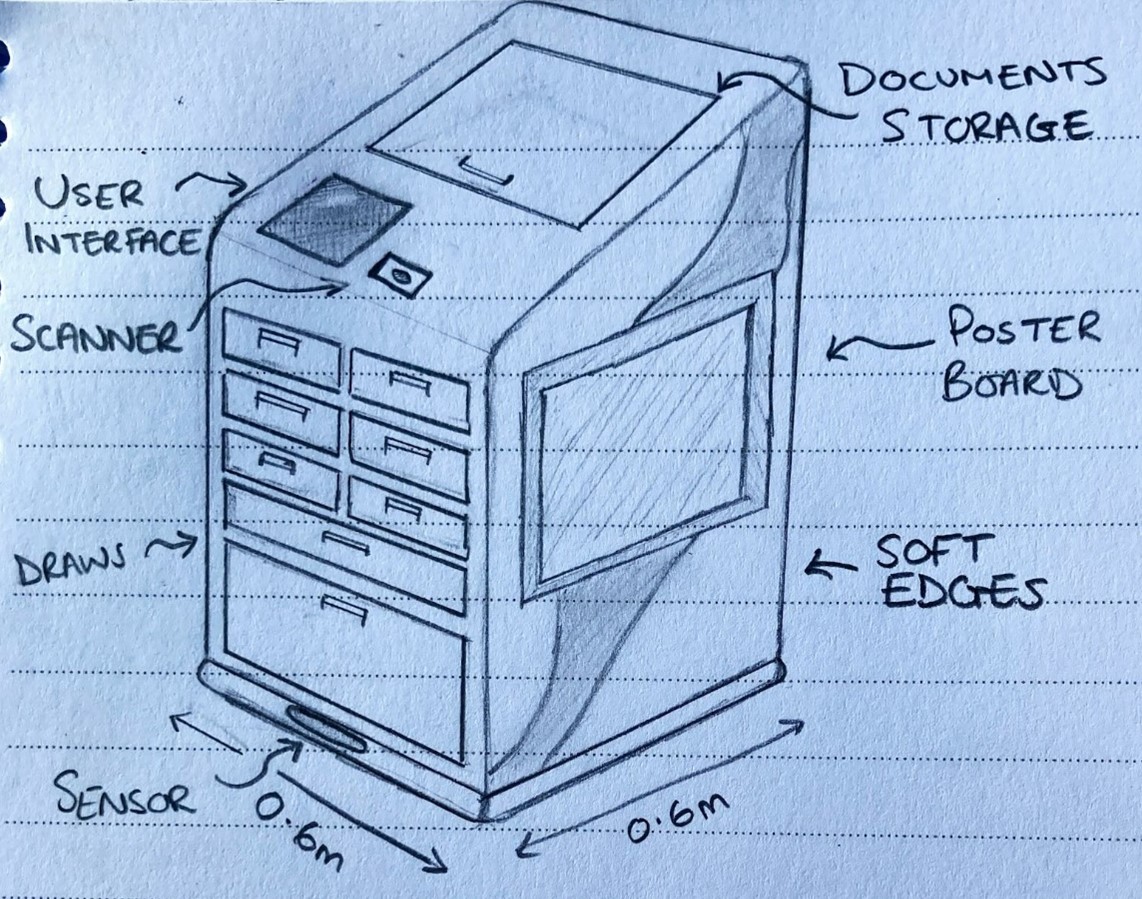 DOCUMENTS
STORAGE
USER
INTERFACE
SCANNER
POSTER
BOARD
DRAWS
SOFT
EDGES
SENSOR
0.6m
0.6m